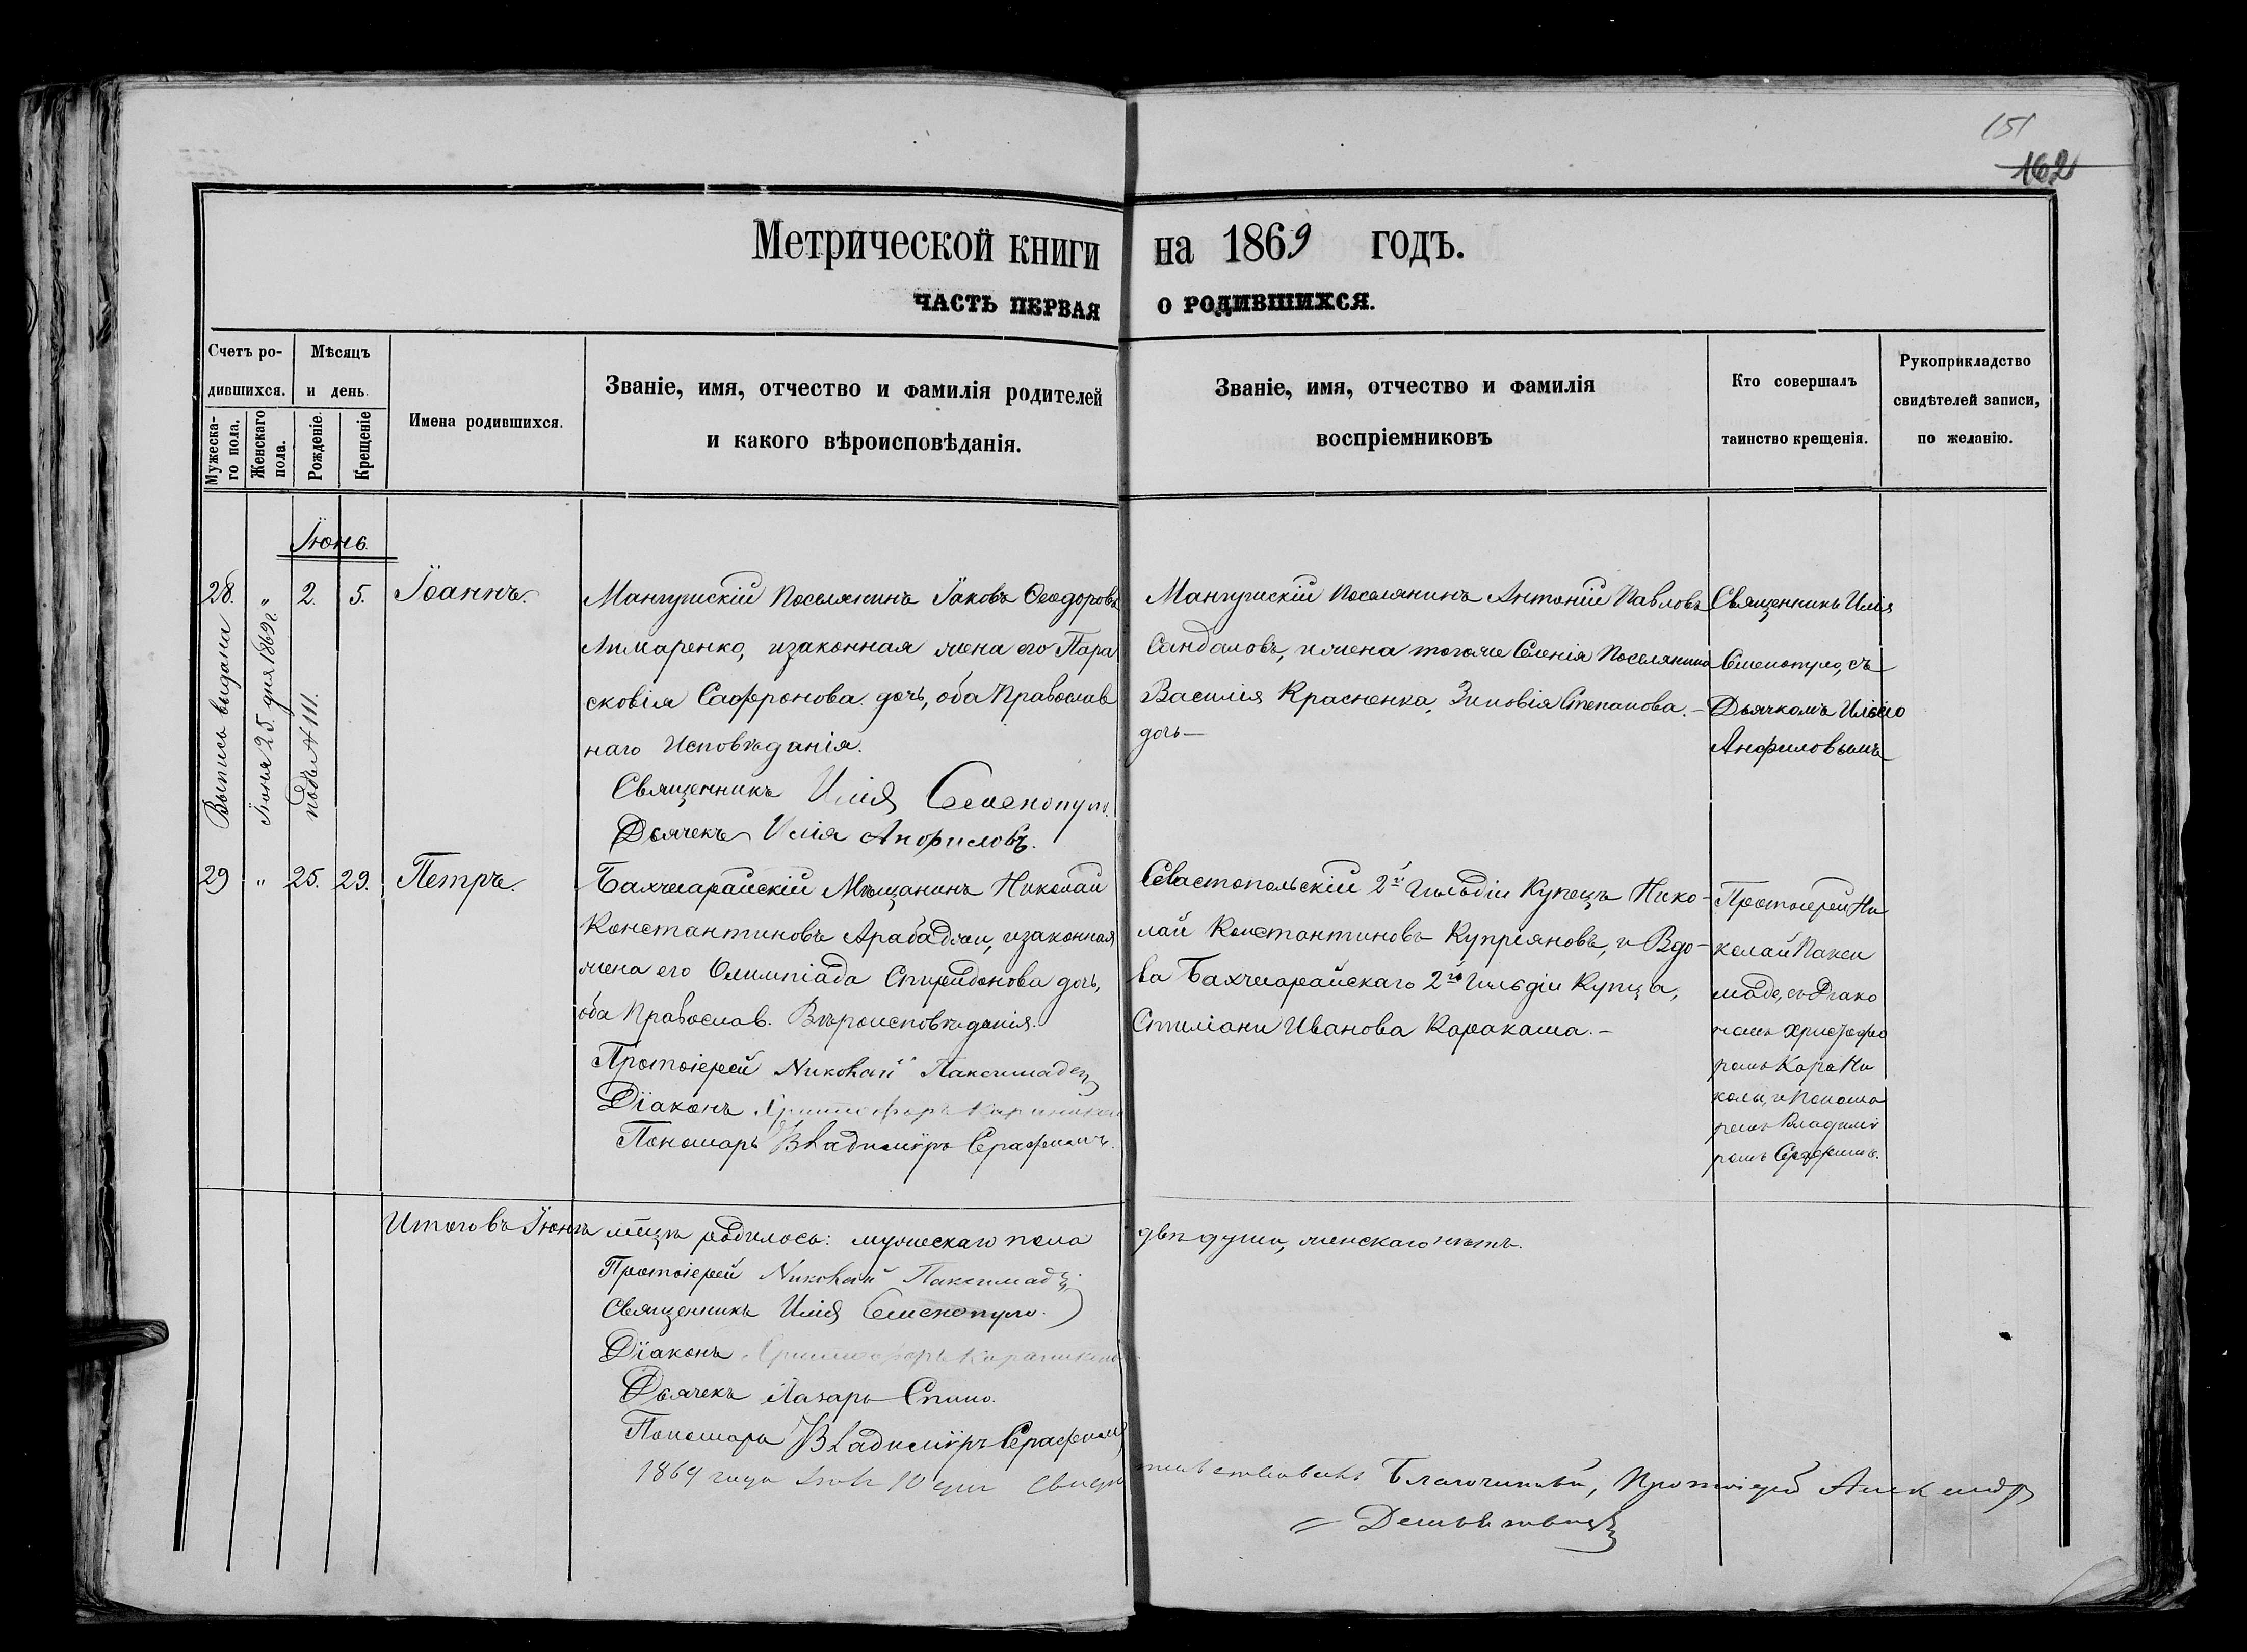 151
162
Метрической книги на 1869 годъ.
ЧАСТЬ ПЕРВАЯ О РОДИВШИХСЯ.
Счетъ ро-
дившихся.
Мужеска-
го пола.
Женскаго
пола.
Мѣсяцъ
и день.
Рожденіе.
Крещеніе
Имена родившихся.
Званіе, имя, отчество и фамилія родителей
и какого вѣроисповѣданія.
Званіе, имя, отчество и фамилія
воспріемниковъ
Кто совершалъ
таинство крещенія.
Рукоприкладство
свидѣтелей записи,
по желанію.
Іюнь.
28. „ 2. 5. Іоаннъ.
Выпись выдана
Іюня 25 дня 1869 г.
подъ № 111.
Мангушскій Поселянинъ Іаковъ Ѳеодоровъ
Лимаренко, изаконная жена его Пара
сковія Сафронова дочь, оба Православ
наго Исповѣданія.
Священникъ Илія Семенопуло.
Дьячекъ Илія Анфиловъ.
Мангушскій Поселянинъ Антоній Павловъ
Сандаловъ, ижена тогоже Селенія Поселянина
Василія Красненка, Зиновія Степанова
дочь —
Священникъ Илія
Семенопуло, съ
Дьячкомъ Иліею
Анфиловымъ
29 „ 25. 29. Петръ.
Бахчисарайскій Мѣщанинъ Николай
Константиновъ Арабаджи, изаконная
жена его Олимпіада Спиридонова дочь,
оба Православ. Вѣроисповѣданія.
Протоіерей Николай Паксимадей
Діаконъ Христофоръ Караникола
Пономарь Владиміръ Серафимъ.
Севастопольскій 2й Гильдіи Купецъ Нико-
лай Константиновъ Купріяновъ, и Вдо-
ва Бахчисарайскаго 2й Гильдіи Купца,
Стиліани Иванова Каракаша. —
Протоіерей Ни
колай Пакси
маде, съ Діако
номъ Христофо
ромъ Кара Ни
колы, и Понома
ремъ Владимі
ромъ Серафимъ.
Итого въ Іюнѣ мѣцѣ родилось: мужескаго пола двѣ души, женскаго нѣтъ.
Протоіерей Николай Паксимадей
Священникъ Илія Семенопуло.
Діаконъ Христофоръ Караникола
Дьячекъ Лазарь Спило.
Пономарь Владиміръ Серафимъ
1869 года 10 дня Свидѣ
тельствовалъ Благочинный, Протоіерей Александръ